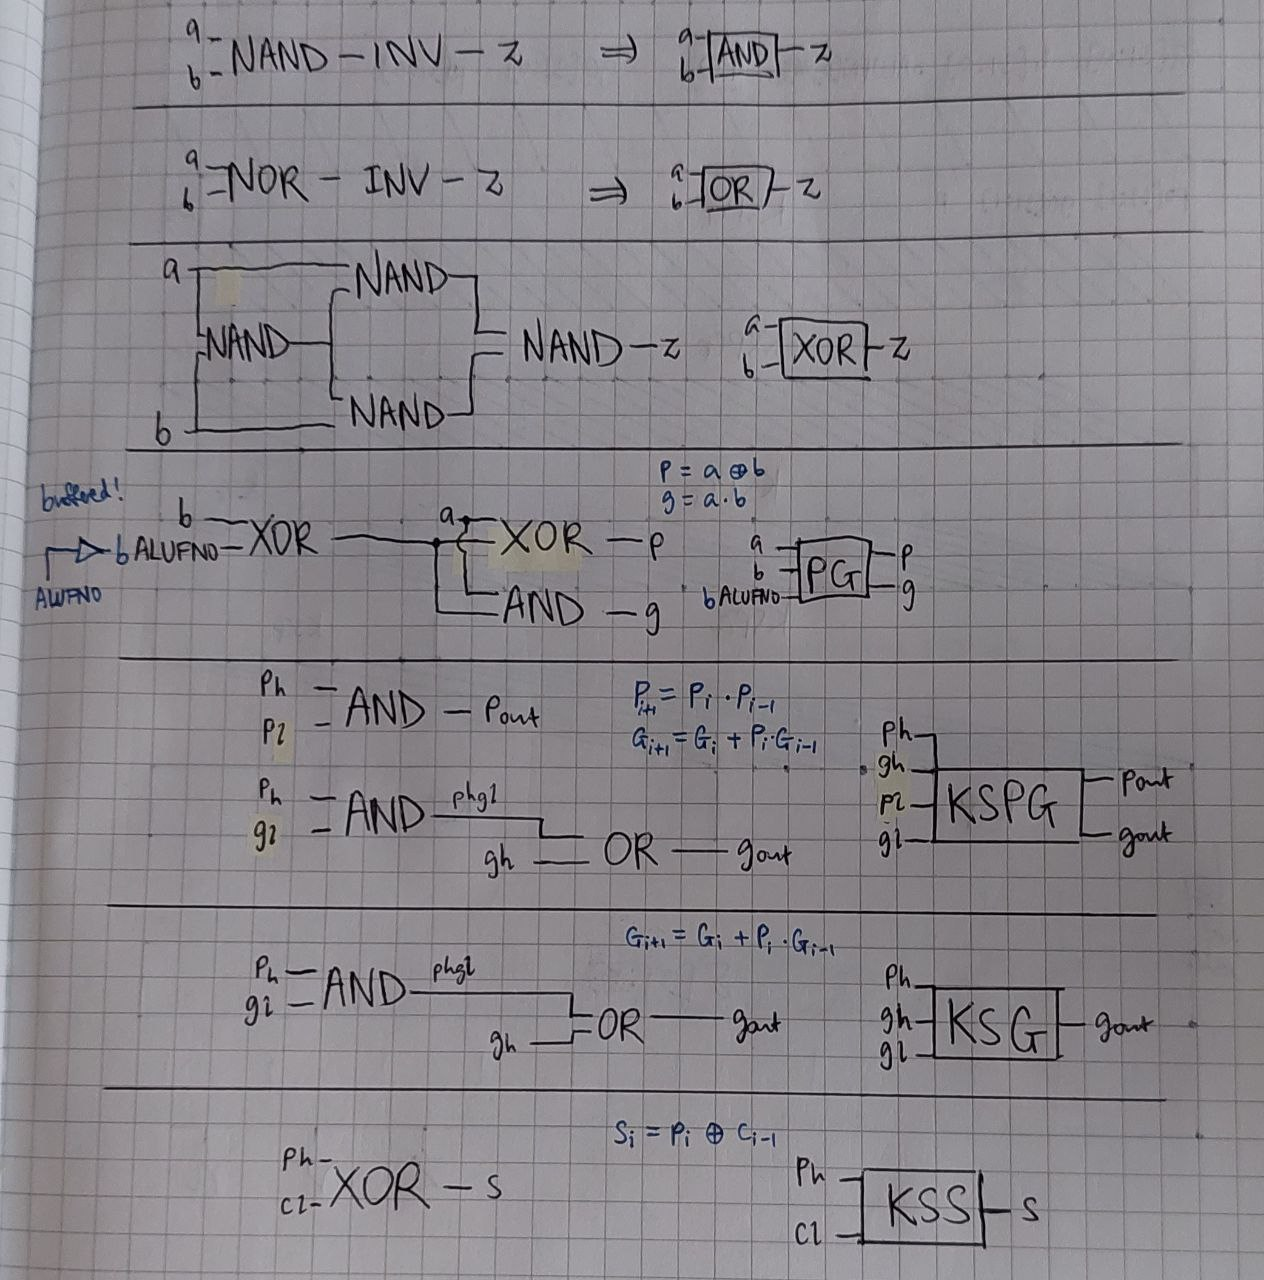 a
b NAND - INV - z ⇒ a b AND - z
a
b NOR - INV - z ⇒ a b OR - z
a NAND
NAND NAND - z a b XOR z
b NAND
p = a ⊕ b
g = a·b
buffered!
b XOR a XOR - p
bALUFN0
ALUFN0
AND - g
a
b
bALUFN0
PG
p
g
Ph
Pl
AND - Pout
Pi+1 = Pi · Pi-1
Gi+1 = Gi + Pi·Gi-1
Ph
gl
AND phgl
gh OR gout
ph
gh
pl
gl
KSPG
pout
gout
Gi+1 = Gi + Pi · Gi-1
Ph
gl
AND phgl
gh OR gout
Ph
gh
gl
KSG gout
Si = Pi ⊕ Ci-1
Ph
Cl
XOR - S
Ph
Cl
KSS S